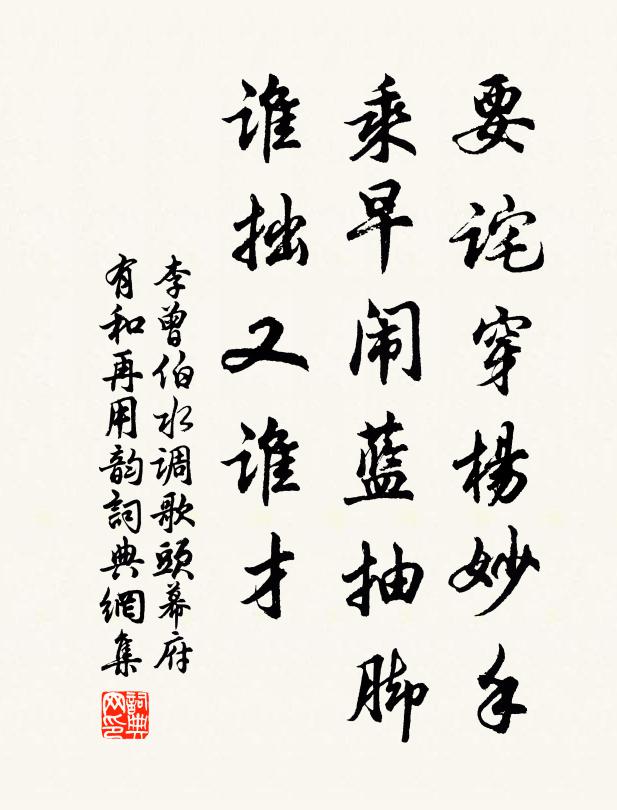 要诧穿楊妙手
乘早闹蓝抽脚
谁拙又谁才
李曾伯水调歌頭幕府
有和再用韵詞典網集
詞典
网印